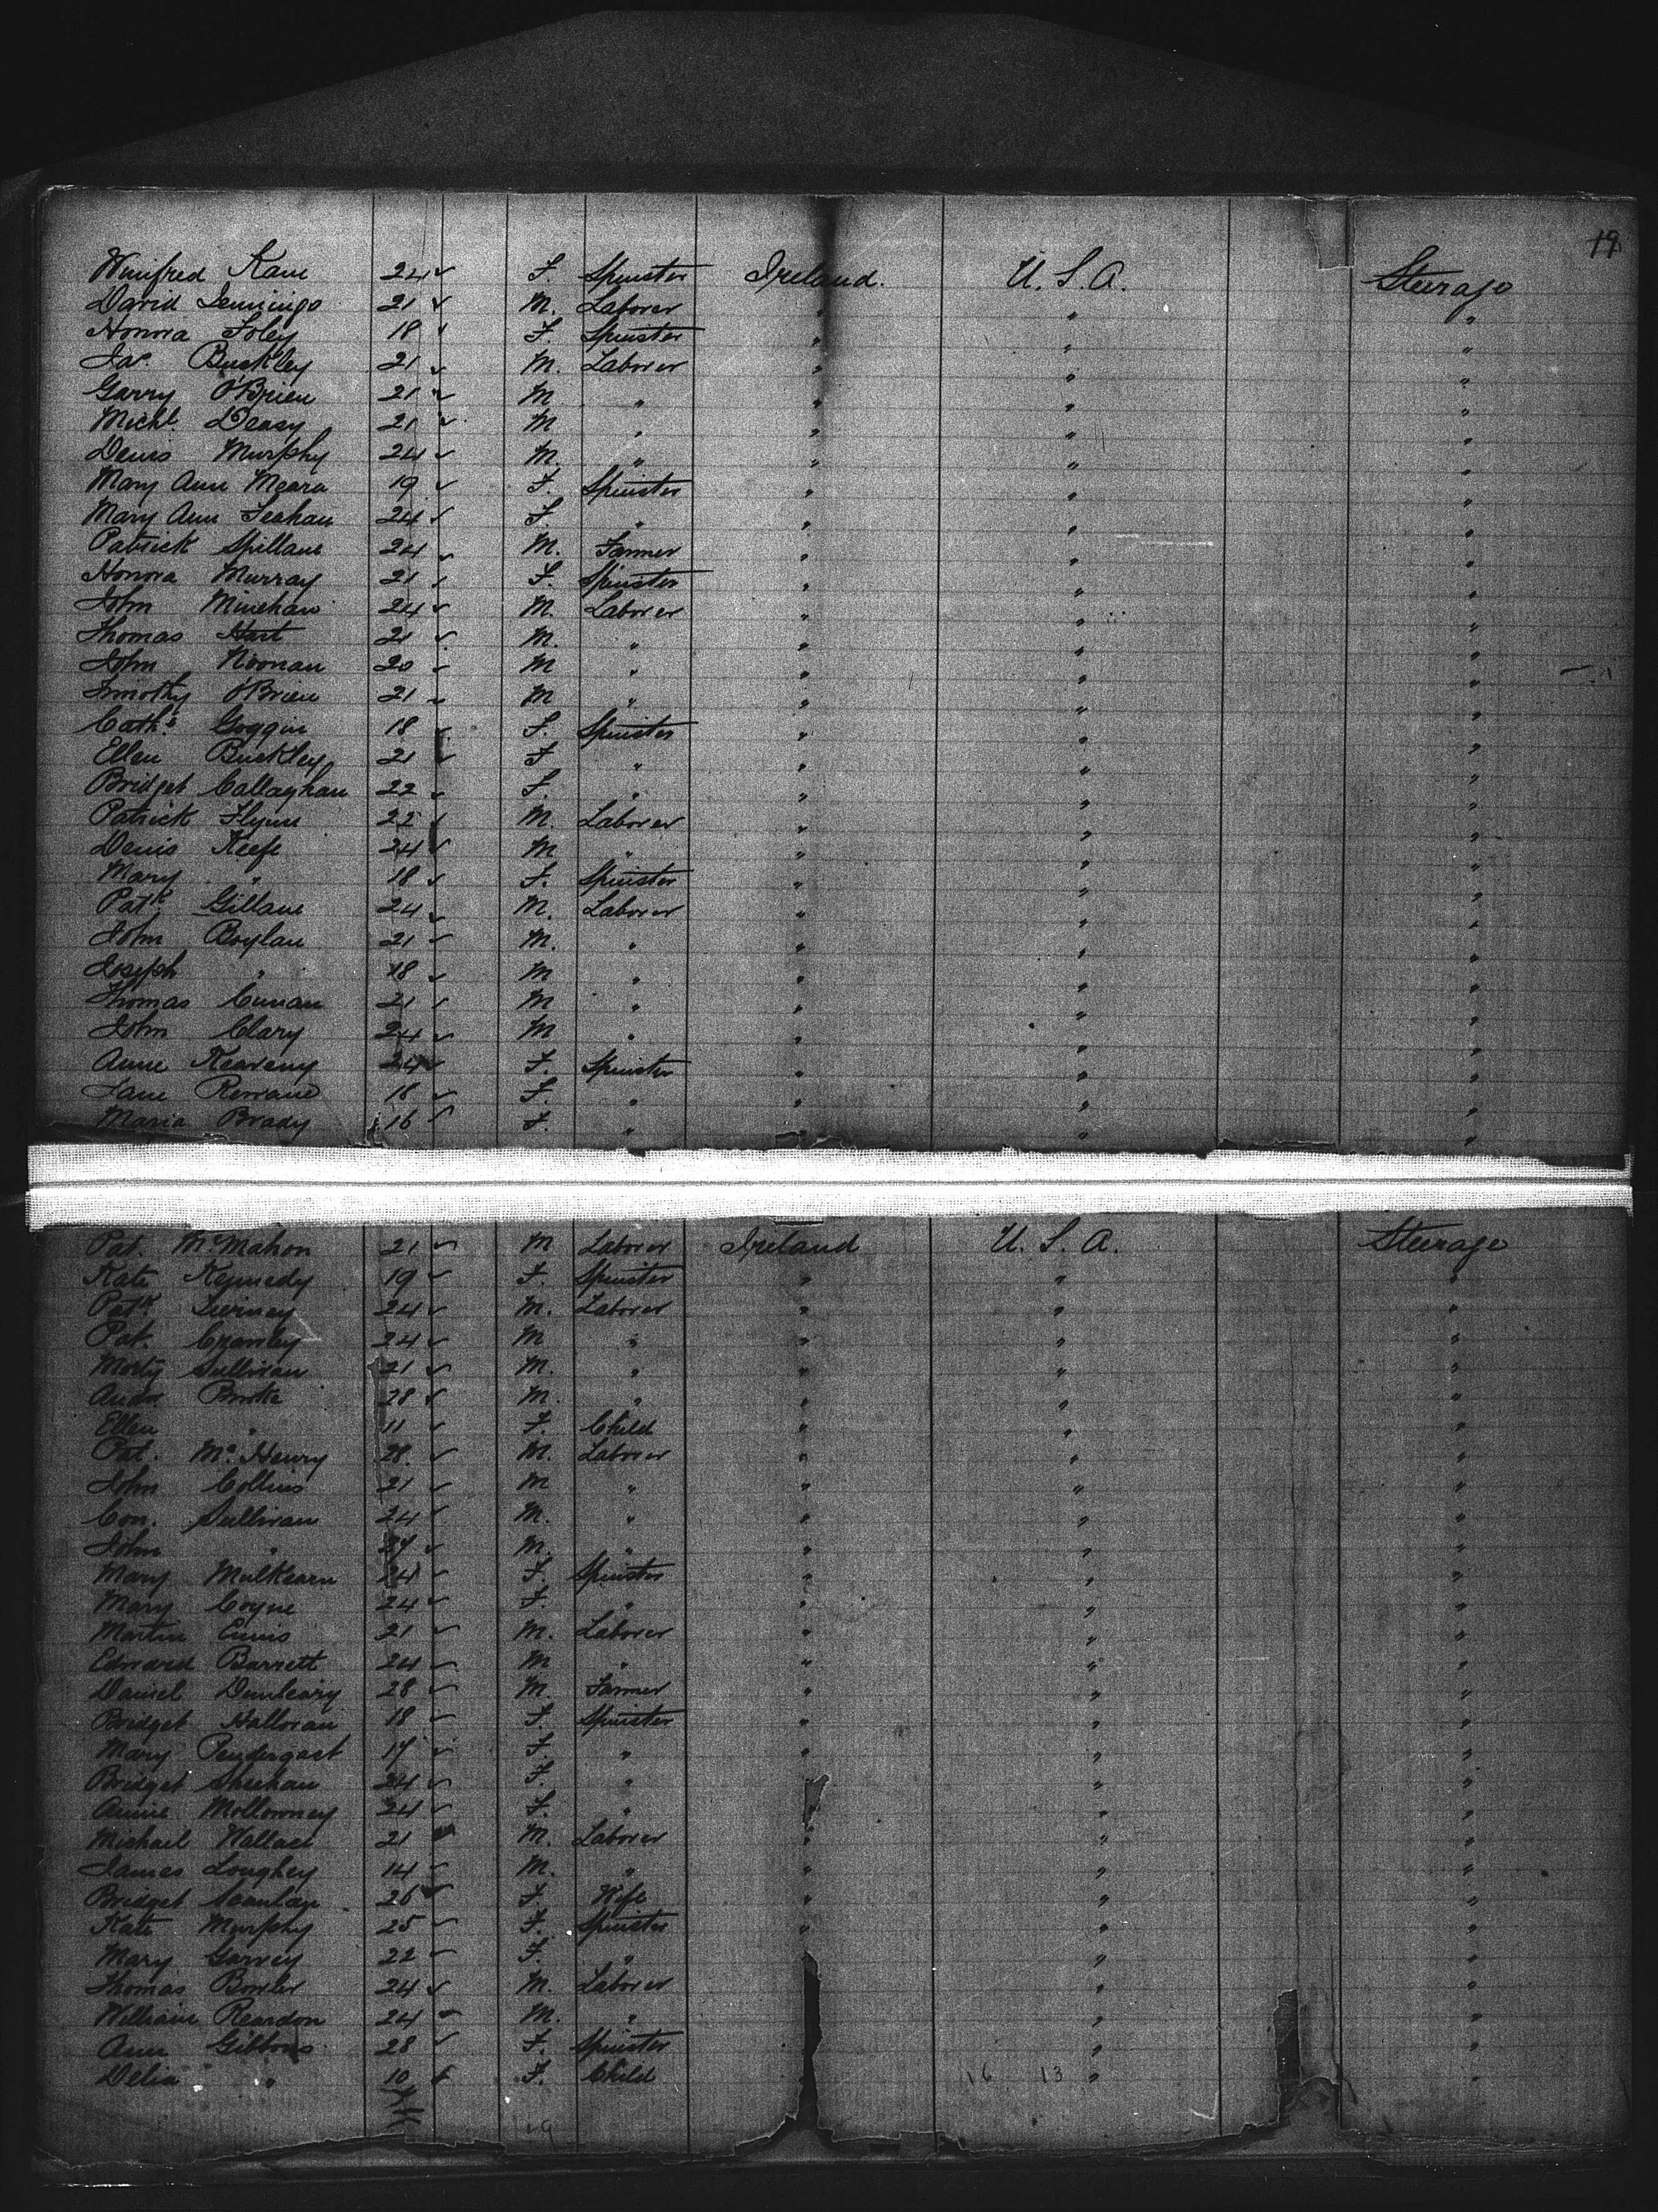 19
Winifred Kane 24 F. Spinster Ireland. U. S. A. Steerage
David Jennings 21 M. Laborer " " "
Honora Foley 18 F. Spinster " " "
Jas. Buckley 21 M. Laborer " " "
Garry O'Brien 21 M " " " "
Michl. Deasy 21 M " " " "
Denis Murphy 24 M. " " " "
Mary Ann Meara 19 F. Spinster " " "
Mary Ann Leahan 24 F. " " " "
Patrick Spillane 24 M. Farmer " " "
Honora Murray 21 F. Spinster " " "
John Minehan 24 M. Laborer " " "
Thomas Hart 21 M. " " " "
John Noonan 20 M " " " "
Timothy O'Brien 21 M " " " "
Cath. Goggin 18 F. Spinster " " "
Ellen Buckley 21 F " " " "
Bridget Callaghan 22 F. " " " "
Patrick Flynn 22 M. Laborer " " "
Denis Keefe 24 M " " " "
Mary " 18 F. Spinster " " "
Patk. Gillane 24 M. Laborer " " "
John Boylan 21 M. " " " "
Joseph " 18 M " " " "
Thomas Cunan 21 M " " " "
John Clary 24 M " " " "
Anne Keaveny 24 F. Spinster " " "
Jane 18 F. " " " "
Maria Brady 16 F. " " " "
Pat. McMahon 21 M Laborer Ireland U. S. A. Steerage
Kate Kennedy 19 F. Spinster " " "
Patk Tierney 24 M. Laborer " " "
Pat. Crowley 24 M " " " "
Morty Sullivan 21 M. " " " "
Andw Burke 28 M. " " " "
Ellen " 11 F. Child " " "
Pat. McHenry 28 M. Laborer " " "
John Collins 21 M " " " "
Con. Sullivan 24 M. " " " "
John " 27 M. " " " "
Mary Mulkearn 24 F. Spinster " " "
Mary Coyne 24 F. " " " "
Martin Ennis 21 M. Laborer " " "
Edward Barrett 24 M " " " "
Daniel Dunleavy 28 M. Farmer " " "
Bridget Halloran 18 F. Spinster " " "
Mary Pendergast 17 F. " " " "
Bridget Sheehan 24 F. " " " "
Annie Mollowney 24 F. " " " "
Michael Wallace 21 M. Laborer " " "
James Loughey 14 M. " " " "
Bridget Scanlan 26 F. Wife " " "
Kate Murphy 25 F. Spinster " " "
Mary Garvey 22 F. " " " "
Thomas Bowler 24 M. Laborer " " "
William Reardon 24 M. " " "
Ann Gibbons 28 F. Spinster " "
Delia " 10 F. Child " " "
16 13